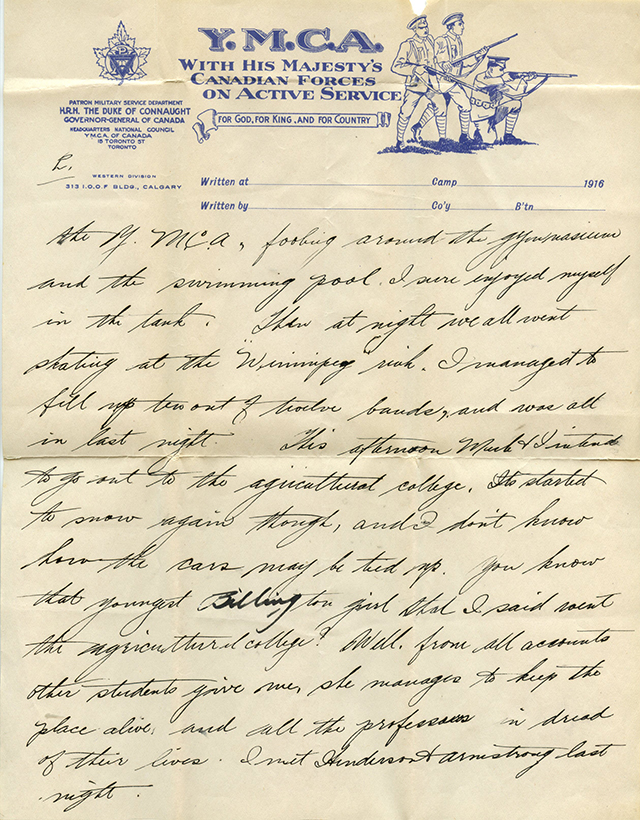 Y.M.C.A.
WITH HIS MAJESTY'S
CANADIAN FORCES
ON ACTIVE SERVICE
FOR GOD, FOR KING, AND FOR COUNTRY
PATRON MILITARY SERVICE DEPARTMENT
H.R.H. THE DUKE OF CONNAUGHT
GOVERNOR-GENERAL OF CANADA
HEADQUARTERS NATIONAL COUNCIL
Y.M.C.A. OF CANADA
15 TORONTO ST
TORONTO
WESTERN DIVISION
313 I.O.O.F BLDG., CALGARY
Written at Camp 1916
Written by Co'y B'tn
the Y. M.C.A, fooling around the gymnasium
and the swimming pool. I sure enjoyed myself
in the tank. Then at night we all went
skating at the "Winnipeg" rink. I managed to
fill up ten out of twelve bands, and was all
in last night. This afternoon & I intend
to go out to the agricultural college. Its started
to snow again though, and I don't know
how the cars may be tied up. You know
that youngest Billington girl that I said went
the agricultural college? Well, from all accounts
other students give me, she manages to keep the
place alive, and all the professors in dread
of their lives. I met Henderson & Armstrong last
night.